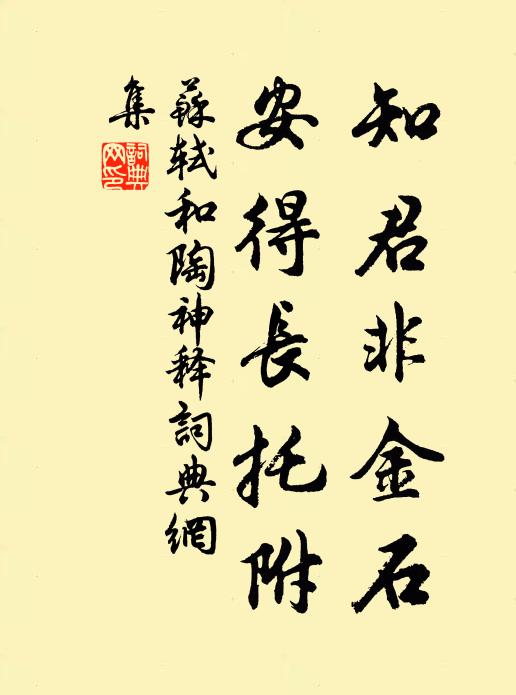 知君非金石
安得長托附
蘇軾和陶神释詞典網
集
詞典網印